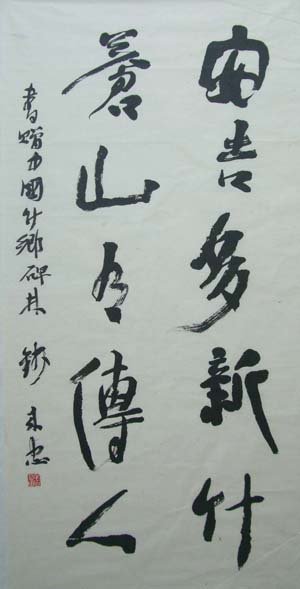 安吉多新竹
蒼山有傳人
書贈中國竹鄉碑林 錢来忠